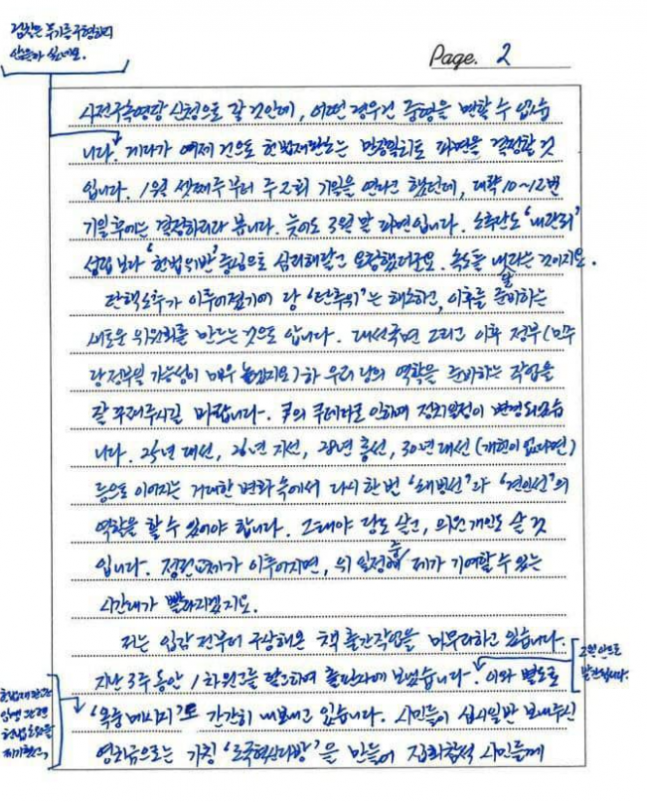 Page. 2
사전구속영장 신청으로 갈 것인데, 어떤 경우건 중형을 면할 수 없습
니다. 게다가 예제 건으로 헌법재판소는 만장일치로 파면을 결정할 것
입니다. 1월 셋째주부터 주2회 기일을 연다고 했던데, 대략 10~12번
기일 후에는 결정하리라 봅니다. 늦어도 3월 말 파면입니다. 소추단도 '내란죄'
성립보다 '헌법위반' 중심으로 심리해달라고 요청했더군요. 속도를 내라는 것이지요.
탄핵소추가 이루어졌기에 당 '탄추위'는 해소하고, 이후를 준비하는
새로운 위원회를 만드는 것으로 압니다. 대선국면 그리고 이후 정부(민주
당정부일 가능성이 매우 높겠지요)하 우리 당의 역할을 준비하는 작업을
잘 꾸려주시길 바랍니다. 尹의 쿠데타로 인하여 정치일정이 변경되었습
니다. 25년 대선, 26년 지선, 28년 총선, 30년 대선(개헌이 없다면)
등으로 이어지는 거대한 변화 속에서 다시 한번 '쇄빙선'과 '견인선'의
역할을 할 수 있어야 합니다. 그래야 당도 살고, 의원 개인도 살 것
입니다. 정권교체가 이루어지면, 위 일정 중 제가 기여할 수 있는
시간대가 빨라지겠지요.
저는 입감 전부터 구상해온 책 출간작업을 마무리하고 있습니다.
지난 3주 동안 1차 원고를 탈고하여 출판사에 보냈습니다. 이와 별도로
'옥중 메시지'도 간간히 내보내고 있습니다. 시민들이 십시일반 보내주신
영치금으로는 가칭 '조국혁신다방'을 만들어 집회참석 시민들께